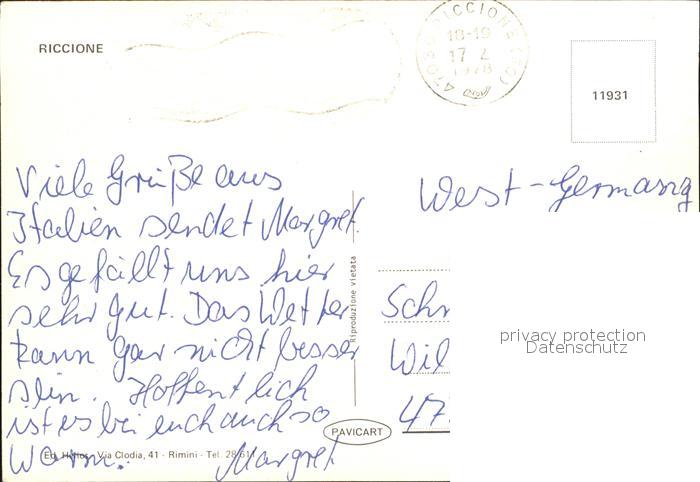 RICCIONE
47036 RICCIONE (FO)
18-19
17
1978
11931
Viele Grüße aus
Italien sendet Margret.
Es gefällt uns hier
sehr gut. Das Wetter
kann gar nicht besser
sein. Hoffentlich
ist es bei euch auch so
Warm. Margret
West-Germany
Sch
Wil
47
privacy protection
Datenschutz
Riproduzione vietata
PAVICART
Via Clodia, 41 - Rimini - Tel. 28